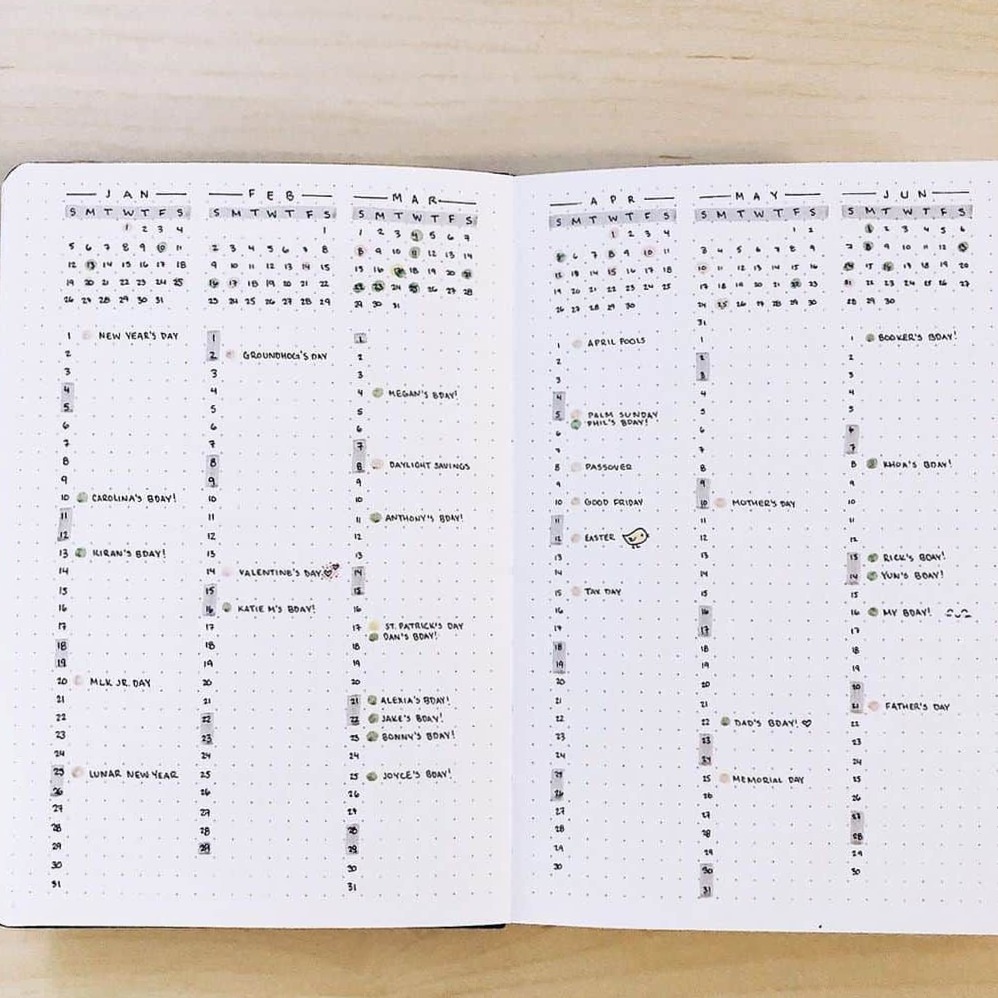 JAN
S M T W T F S
1 2 3 4
5 6 7 8 9 10 11
12 13 14 15 16 17 18
19 20 21 22 23 24 25
26 27 28 29 30 31
1 NEW YEAR'S DAY
2
3
4
5
6
7
8
9
10 CAROLINA'S BDAY!
11
12
13 KIRAN'S BDAY!
14
15
16
17
18
19
20 MLK JR. DAY
21
22
23
24
25 LUNAR NEW YEAR
26
27
28
29
30
31
FEB
S M T W T F S
1
2 3 4 5 6 7 8
9 10 11 12 13 14 15
16 17 18 19 20 21 22
23 24 25 26 27 28 29
1
2 GROUNDHOG'S DAY
3
4
5
6
7
8
9
10
11
12
13
14 VALENTINE'S DAY
15
16 KATIE M'S BDAY!
17
18
19
20
21
22
23
24
25
26
27
28
29
MAR
S M T W T F S
1 2 3 4 5 6 7
8 9 10 11 12 13 14
15 16 17 18 19 20 21
22 23 24 25 26 27 28
29 30 31
1
2
3
4 MEGAN'S BDAY!
5
6
7
8 DAYLIGHT SAVINGS
9
10
11 ANTHONY'S BDAY!
12
13
14
15
16
17 ST. PATRICK'S DAY
DAN'S BDAY!
18
19
20
21 ALEXIA'S BDAY!
22 JAKE'S BDAY!
23 BONNY'S BDAY!
24
25 JOYCE'S BDAY!
26
27
28
29
30
31
APR
S M T W T F S
1 2 3 4
5 6 7 8 9 10 11
12 13 14 15 16 17 18
19 20 21 22 23 24 25
26 27 28 29 30
1 APRIL FOOLS
2
3
4
5 PALM SUNDAY
PHIL'S BDAY!
6
7
8 PASSOVER
9
10 GOOD FRIDAY
11
12 EASTER
13
14
15 TAX DAY
16
17
18
19
20
21
22
23
24
25
26
27
28
29
30
MAY
S M T W T F S
1 2
3 4 5 6 7 8 9
10 11 12 13 14 15 16
17 18 19 20 21 22 23
24 25 26 27 28 29 30
31
1
2
3
4
5
6
7
8
9
10 MOTHER'S DAY
11
12
13
14
15
16
17
18
19
20
21
22 DAD'S BDAY!
23
24
25 MEMORIAL DAY
26
27
28
29
30
31
JUN
S M T W T F S
1 2 3 4 5 6
7 8 9 10 11 12 13
14 15 16 17 18 19 20
21 22 23 24 25 26 27
28 29 30
1 BOOKER'S BDAY!
2
3
4
5
6
7
8 KHOA'S BDAY!
9
10
11
12
13 RICK'S BDAY!
14 YUN'S BDAY!
15
16 MY BDAY!
17
18
19
20
21 FATHER'S DAY
22
23
24
25
26
27
28
29
30